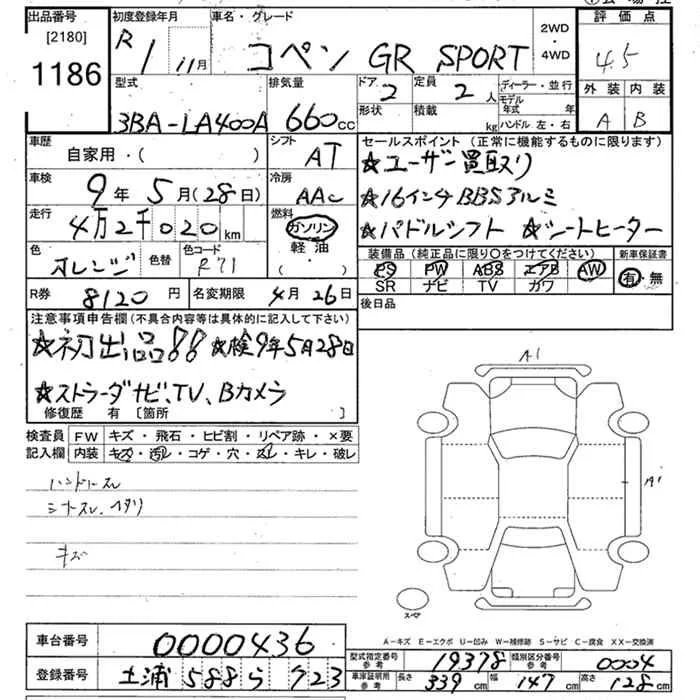 出品番号 初度登録年月 車名・グレード 評価点
[2180] R1 11月 コペン GR SPORT 2WD・4WD 4.5
1186
型式 排気量 ドア 2 定員 2人 ディーラー・並行 外装 内装
3BA-LA400A 660cc 形状 積載 kg モデル年式 年 ハンドル 左・右 A B
車歴 自家用・( ) シフト AT セールスポイント (正常に機能するものに限ります)
★ユーザー買取り
車検 9年5月(28日) 冷房 AAC ★16インチBBSアルミ
走行 4万2千020km 燃料 ガソリン 軽油 ( ・ ) ★パドルシフト ★シートヒーター
色 オレンジ 色替 色コード R71 装備品(純正品に限り〇をつけてください) 新車保証書
PS PW ABS エアB AW 有・無
SR ナビ TV カワ
R券 8120円 名変期限 4月26日 後日品
注意事項申告欄(不具合内容等は具体的に記入して下さい)
★初出品!! ★検9年5月28日
★ストラーダナビ、TV、Bカメラ
修復歴 有 [箇所 ]
A1
検査員 FW キズ・飛石・ヒビ割・リペア跡・×要
記入欄 内装 キズ・汚レ・コゲ・穴・スレ・キレ・破レ
ハンドルスレ
シートスレ、ヘタリ
キズ
A1
スペア
A-キズ E-エクボ U-凹み W-補修跡 S-サビ C-腐食 XX-交換済
車台番号 0000436 型式指定番号 参考 19378 類別区分番号 参考 0004
登録番号 土浦 588 ら 723 車庫証明用 参考 長さ 339cm 幅 147cm 高さ 128cm